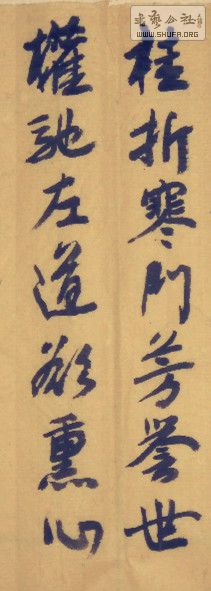 桂折寒門芳譽世
權馳左道欲熏心
書藝公社
WWW.SHUFA.ORG